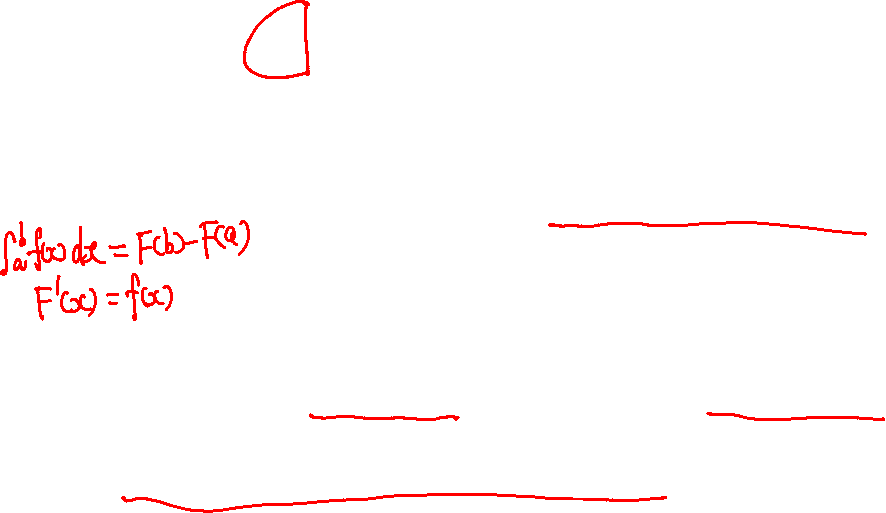 ∫ₐᵇ f(x) dx = F(b) - F(a)
F'(x) = f(x)